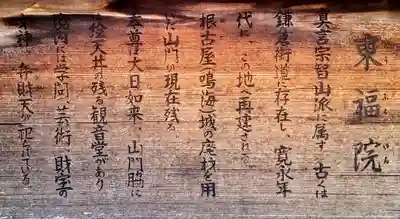 東福院
真言宗智山派に属す 古くは
鎌倉街道に存在し、寛永年
代に、この地へ再建された。
根古屋(鳴海)城の廃材を用
いた山門が現在残る
本尊は大日如来、山門脇に
は格天井の残る観音堂があり
院内には学問、芸術、財宝の
弁財天が祀られている。